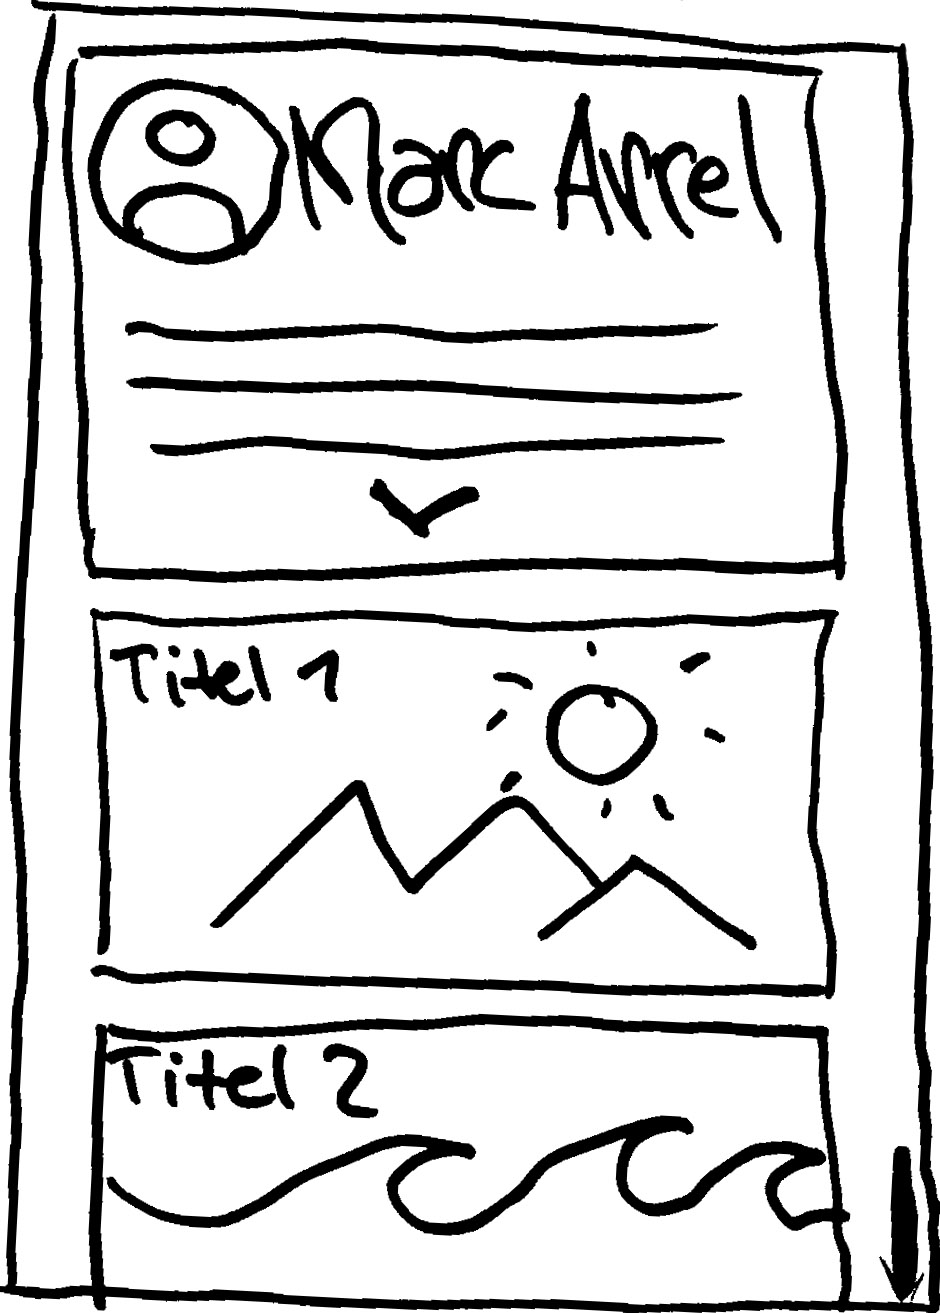 Marc Avrel
Titel 1
Titel 2